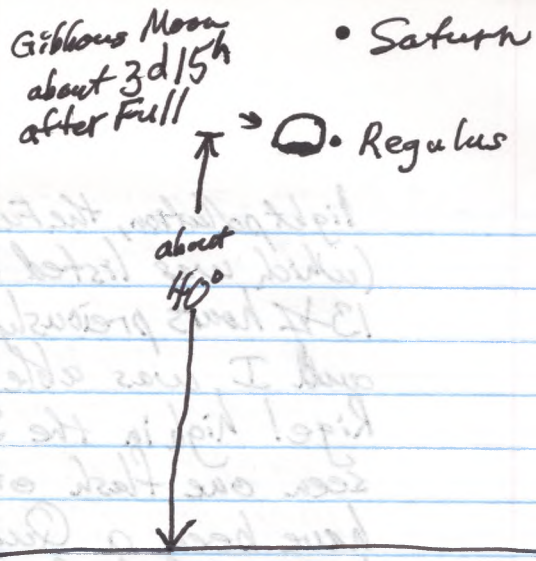 Gibbous Moon
about 3d 15h
after Full
• Saturn
• Regulus
about
40°